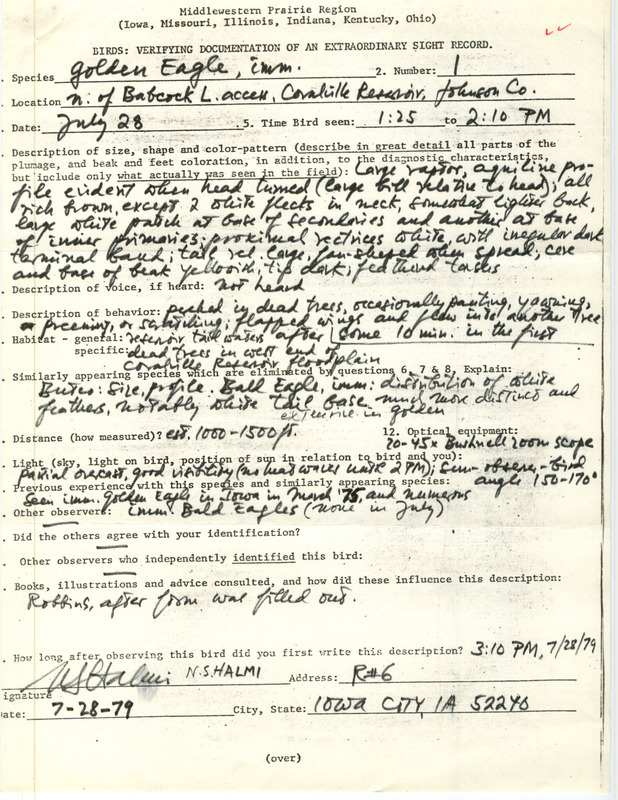 Middlewestern Prairie Region
(Iowa, Missouri, Illinois, Indiana, Kentucky, Ohio)
BIRDS: VERIFYING DOCUMENTATION OF AN EXTRAORDINARY SIGHT RECORD.
. Species Golden Eagle, imm. 2. Number: 1
. Location n. of Babcock L. access, Coralville Reservoir, Johnson Co.
. Date: July 28 5. Time Bird seen: 1:25 to 2:10 PM
Description of size, shape and color-pattern (describe in great detail all parts of the
plumage, and beak and feet coloration, in addition, to the diagnostic characteristics,
but include only what actually was seen in the field): Large raptor, aquiline pro-
file evident when head turned (large bill relative to head); all
rich brown, except 2 white flecks in neck, somewhat lighter back,
large white patch at base of secondaries and another at base
of inner primaries; proximal rectrices white, with irregular dark
terminal band; tail rel. large, fan-shaped when spread; cere
and base of beak yellowish, tip dark; feathered tarsus
. Description of voice, if heard: not heard
. Description of behavior: perched in dead trees, occasionally panting, yawning,
or preening, or scratching; flapped wings and flew into another tree
Habitat - general: reservoir tail waters after some 10 min. in the first
specific: dead trees in west end of
Coralville Reservoir floodplain
. Similarly appearing species which are eliminated by questions 6, 7 & 8, Explain:
Buteo: size, profile. Bald Eagle, imm: distribution of white
feathers, notably white tail base much more distinct and
extensive in golden
. Distance (how measured)? est. 1000-1500 ft. 12. Optical equipment:
20-45x Bushnell zoom scope
. Light (sky, light on bird, position of sun in relation to bird and you):
partial overcast, good visibility (no heat waves until 2 PM); sun-observer-bird
angle 150-170°
. Previous experience with this species and similarly appearing species:
Seen imm. Golden Eagle in Iowa in March '75, and numerous
imm. Bald Eagles (none in July)
. Other observers:
. Did the others agree with your identification?
. Other observers who independently identified this bird:
. Books, illustrations and advice consulted, and how did these influence this description:
Robbins, after form was filled out.
. How long after observing this bird did you first write this description? 3:10 PM, 7/28/79
NS Halmi N.S. HALMI Address: R#6
ignature
ate: 7-28-79 City, State: IOWA CITY, IA 52240
(over)